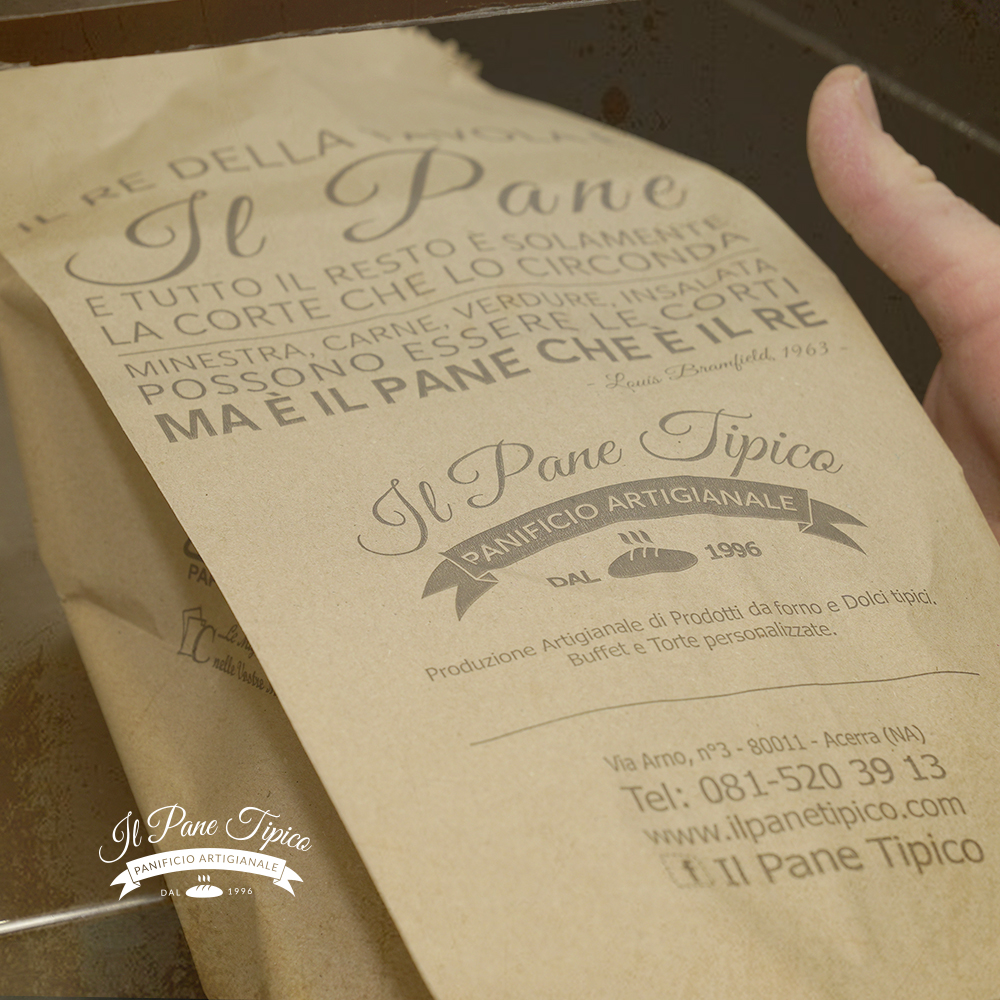 IL RE DELLA TAVOLA È
Il Pane
E TUTTO IL RESTO È SOLAMENTE
LA CORTE CHE LO CIRCONDA
MINESTRA, CARNE, VERDURE, INSALATA
POSSONO ESSERE LE CORTI
MA È IL PANE CHE È IL RE
- Louis Bramfield, 1963 -
Il Pane Tipico
PANIFICIO ARTIGIANALE
DAL 1996
Produzione Artigianale di Prodotti da forno e Dolci tipici.
Buffet e Torte personalizzate.
Via Arno, n°3 - 80011 - Acerra (NA)
Tel: 081-520 39 13
www.ilpanetipico.com
f Il Pane Tipico
nelle Vostre
Il Pane Tipico
PANIFICIO ARTIGIANALE
DAL 1996